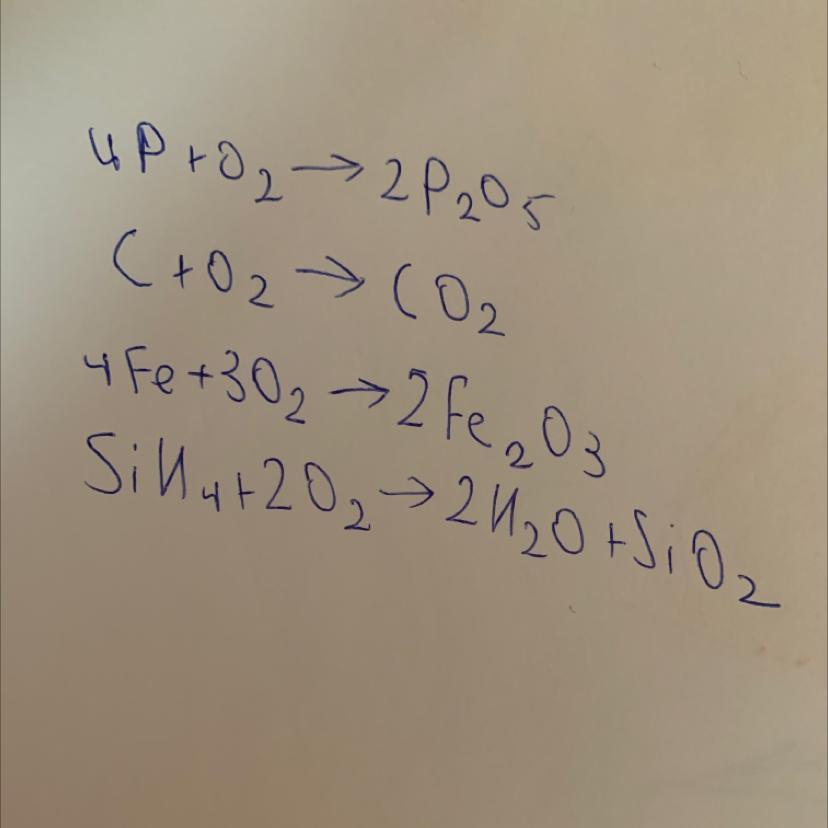 4P + O₂ → 2P₂O₅
C + O₂ → CO₂
4Fe + 3O₂ → 2Fe₂O₃
SiH₄ + 2O₂ → 2H₂O + SiO₂